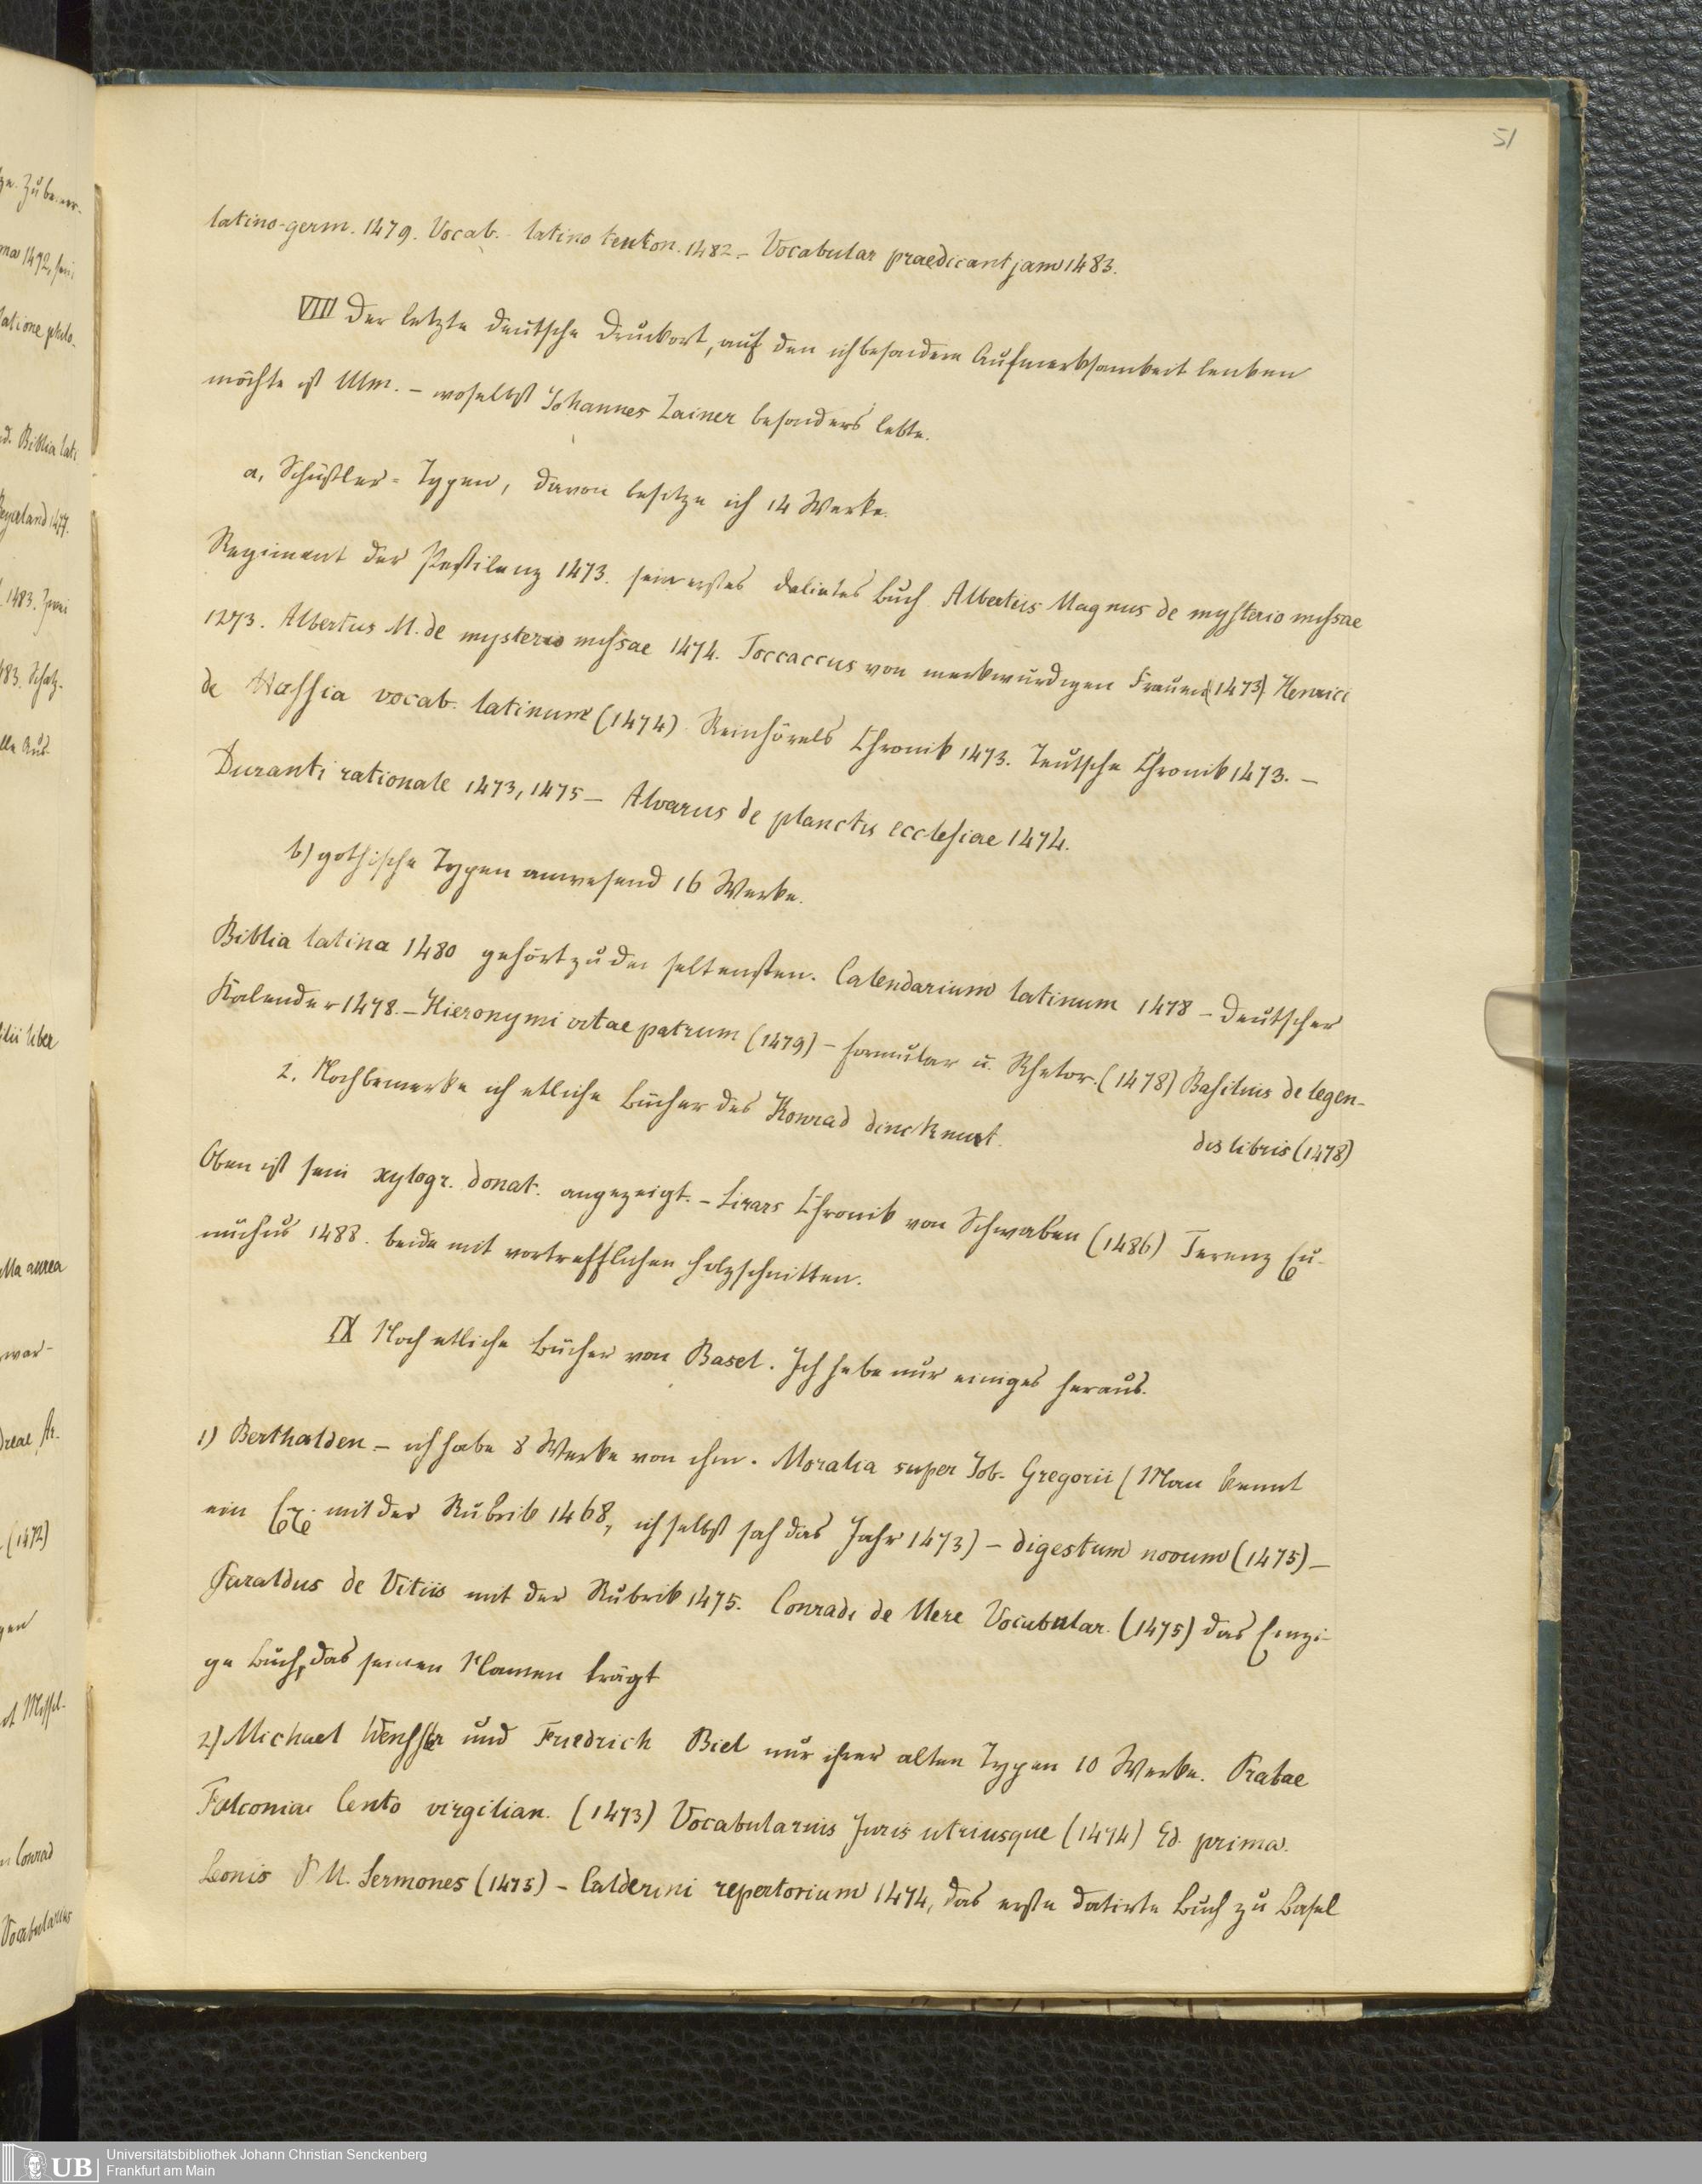 51
latino-germ. 1479. Vocab. latino teuton. 1482 – Vocabular praedicantjam 1483.
VIII Der letzte deutsche Druckort, auf den ich besondere Aufmerksamkeit lenken
möchte ist Ulm. – woselbst Johannes Zainer besonders lebte.
a, Schüßler-Typen, davon besitze ich 14 Werke.
Regiment der Pestilenz 1473. sein erstes datirtes Buch Albertus Magnus de mysterio missae
1273. Albertus M. de mysterio missae 1474. Joccaccus von merkwürdigen Frauen (1473) Henrici
de Hassia vocab. latinum (1474) Reinhörels Chronik 1473. Teutsche Chronik 1473. –
Duranti rationale 1473, 1475 – Alvarus de planctis ecclesiae 1474.
b) gothische Typen anwesend 16 Werke.
Biblia latina 1480 gehört zu den seltensten. Calendarium latinum 1478 – Deutscher
Kalender 1478. – Hieronymi vitae patrum (1479) – formular u. Rhetor. (1478) Basilius de legen-
dis libris (1478)
2. Noch bemerke ich etliche Bücher des Konrad dinckmut.
Oben ist sein xylogr. donat. angezeigt. – Lirars Chronik von Schwaben (1486) Terenz Eu-
nuchus 1488. beide mit vortrefflichen Holzschnitten.
IX Noch etliche Bücher von Basel. Ich hebe nur einiges heraus.
1) Berthalden – ich habe 8 Werke von ihm. Moralia super Job. Gregorii (Man kennt
ein Ex. mit der Rubrik 1468, ich selbst sah das Jahr 1473) – digestum novum (1475) –
Guraldus de Vitiis mit der Rubrik 1475. Conradi de Mere Vocabular. (1475) das Einzi-
ge Buch, das seinen Namen trägt
2) Michael Wenssler und Friedrich Biel nur ihrer alten Typen 10 Werke. Probae
Falconiae Cento virgilian. (1473) Vocabularius Juris utriusque (1474) Ed. prima.
Leonis P. M. Sermones (1475) – Calderini repertorium 1474, das erste datirte Buch zu Basel
Universitätsbibliothek Johann Christian Senckenberg
Frankfurt am Main
UB